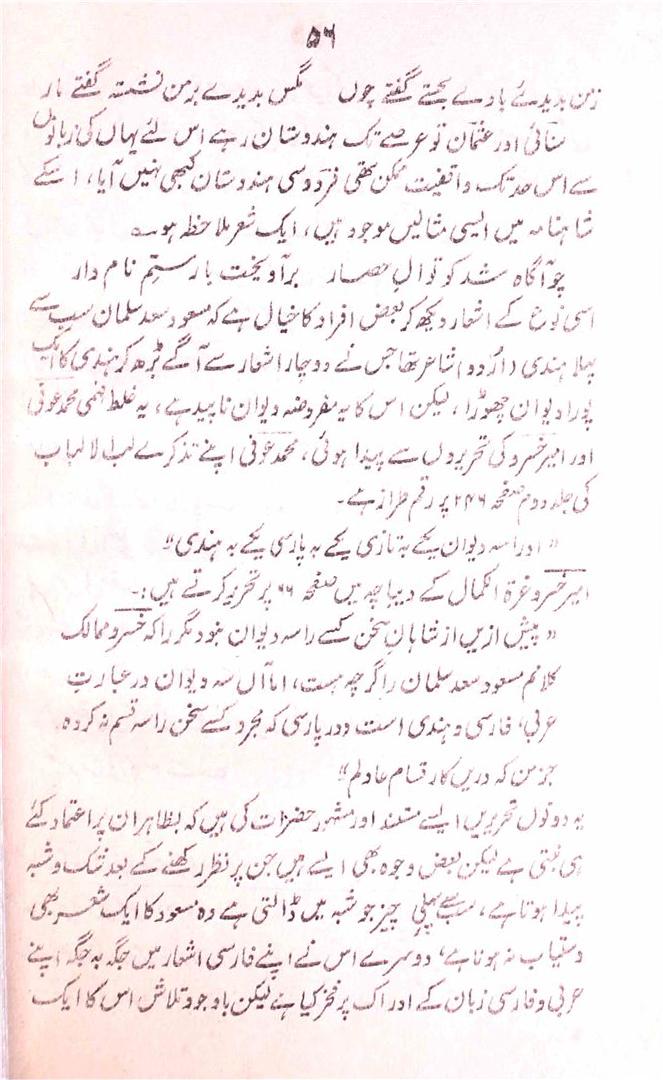 ۵۶
زمن بدیدے بادے بجستے گفتے چوں    مگس بدیدے برمن نشستہ گفتے مار
سنائی اور عثمان تو عرصے تک ہندوستان رہے اس لئے یہاں کی زبانوں
سے اس حد تک واقفیت ممکن تھی فردوسی ہندوستان کبھی نہیں آیا، اسکے
شاہنامہ میں ایسی مثالیں موجود ہیں، ایک شعر ملاحظہ ہو۔
چو آگاہ شد کوتوالِ حصار    برآویخت با رستمِ نام دار
اسی نوع کے اشعار دیکھ کر بعض افراد کا خیال ہے کہ مسعود سعد سلمان سب سے
پہلا ہندی (اردو) شاعر تھا جس نے دو چار اشعار سے آگے بڑھ کر ہندی کا ایک
پورا دیوان چھوڑا، لیکن اس کا یہ مفروضہ دیوان ناپید ہے، یہ غلط فہمی محمد عوفی
اور امیر خسرو کی تحریروں سے پیدا ہوئی، محمد عوفی اپنے تذکرے لب لالباب
کی جلد دوم صفحہ ۲۴۶ پر رقم طراز ہے۔
"اورا سہ دیوان یکے بہ تازی یکے بہ پارسی یکے بہ ہندی"
امیر خسرو غرۃ الکمال کے دیباچہ میں صفحہ ۶۶ پر تحریر کرتے ہیں:۔
"پیش ازیں از شاہانِ سخن کسے را سہ دیوان نبود مگر را کہ خسرو ممالک
کلانم مسعود سعد سلمان را گرچہ ہست، اما آں سہ دیوان در عبارتِ
عربی، فارسی و ہندی است و در پارسی کہ مجرد کسے سخن را سہ قسم نہ کردہ
جز من کہ دریں کار قسام عادلم"
یہ دونوں تحریریں ایسے مستند اور مشہور حضرات کی ہیں کہ بظاہر ان پر اعتماد کئے
ہی بنتی ہے لیکن بعض وجوہ بھی ایسے ہیں جن پر نظر رکھنے کے بعد شک و شبہ
پیدا ہوتا ہے، سب سے پہلی چیز جو شبہ میں ڈالتی ہے وہ مسعود کا ایک شعر بھی
دستیاب نہ ہونا ہے، دوسرے اس نے اپنے فارسی اشعار میں جگہ بہ جگہ اپنے
عربی و فارسی زبان کے ادراک پر فخر کیا ہے لیکن باوجود تلاش اس کا ایک